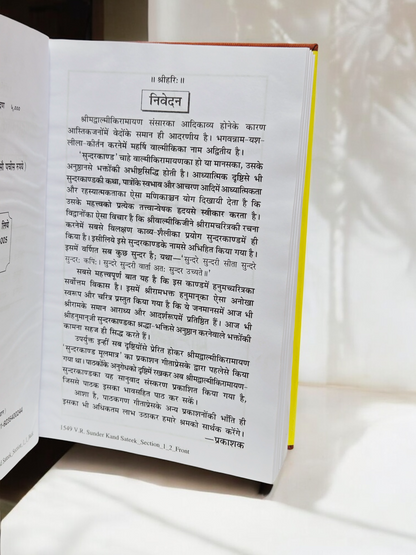 ॥ श्रीहरिः ॥
निवेदन
श्रीमद्वाल्मीकिरामायण संसारका आदिकाव्य होनेके कारण
आस्तिकजनोंमें वेदोंके समान ही आदरणीय है। भगवन्नाम-यश-
लीला-कीर्तन करनेमें महर्षि वाल्मीकिका नाम अद्वितीय है।
'सुन्दरकाण्ड' चाहे वाल्मीकिरामायणका हो या मानसका, उसके
अनुष्ठानसे भक्तोंकी अभीष्टसिद्धि होती है। आध्यात्मिक दृष्टिसे भी
सुन्दरकाण्डकी कथा, पात्रोंके स्वभाव और आचरण आदिमें आध्यात्मिकता
और रहस्यात्मकताका ऐसा मणिकाञ्चन योग दिखायी देता है कि
उसके महत्त्वको प्रत्येक तत्त्वान्वेषक हृदयसे स्वीकार करता है।
विद्वानोंका ऐसा विचार है कि श्रीवाल्मीकिजीने श्रीरामचरित्रकी रचना
करनेमें सबसे विलक्षण काव्य-शैलीका प्रयोग सुन्दरकाण्डमें ही
किया है। इसीलिये इसे सुन्दरकाण्डके नामसे अभिहित किया गया है।
इसमें वर्णित सब कुछ सुन्दर है; यथा—'सुन्दरे सुन्दरी सीता सुन्दरे
सुन्दरः कपिः। सुन्दरे सुन्दरी वार्ता अतः सुन्दर उच्यते॥
सबसे महत्त्वपूर्ण बात यह है कि इस काण्डमें हनुमच्चरित्रका
सर्वोत्तम विकास है। इसमें श्रीरामभक्त हनुमान्‌का ऐसा अनोखा
स्वरूप और चरित्र प्रस्तुत किया गया है कि ये जनमानसमें आज भी
श्रीरामके समान आराध्य और आदर्शरूपमें प्रतिष्ठित हैं। आज भी
श्रीहनुमान्‌जी सुन्दरकाण्डका श्रद्धा-भक्तिसे अनुष्ठान करनेवाले भक्तोंकी
कामना सहज ही सिद्ध करते हैं।
उपर्युक्त इन्हीं सब दृष्टियोंसे प्रेरित होकर श्रीमद्वाल्मीकिरामायण
'सुन्दरकाण्ड मूलमात्र' का प्रकाशन गीताप्रेसके द्वारा पहलेसे किया
गया था। पाठकोंके अनुरोधको दृष्टिमें रखकर अब श्रीमद्वाल्मीकिरामायण-
सुन्दरकाण्डका यह सानुवाद संस्करण प्रकाशित किया गया है,
जिससे पाठक इसका भावसहित पाठ कर सकें।
आशा है, पाठकगण गीताप्रेसके अन्य प्रकाशनोंकी भाँति ही
इसका भी अधिकतम लाभ उठाकर हमारे श्रमको सार्थक करेंगे।
—प्रकाशक
1549 V.R. Sunder Kand Sateek_Section_1_2_Front